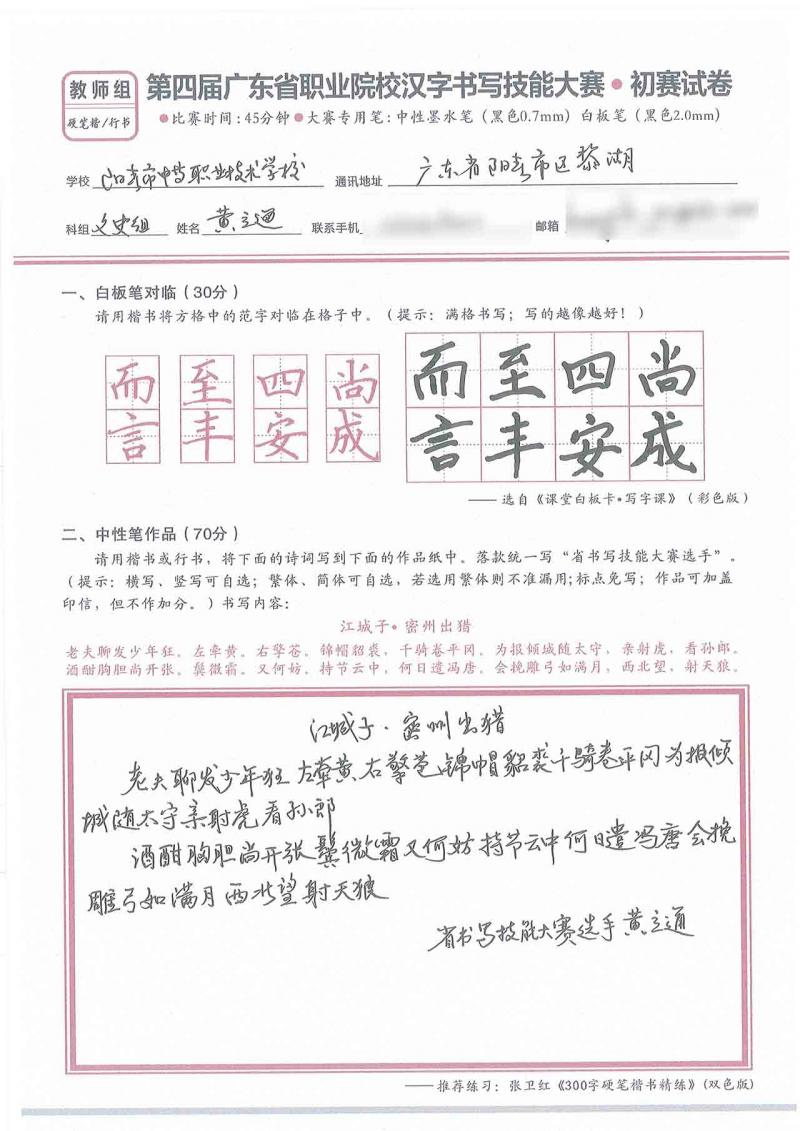 教师组
硬笔楷/行书
第四届广东省职业院校汉字书写技能大赛•初赛试卷
●比赛时间:45分钟●大赛专用笔:中性墨水笔（黑色0.7mm）白板笔（黑色2.0mm）
学校 阳春市中等职业技术学校 通讯地址 广东省阳春市区黎湖
科组 文史组 姓名 黄立通 联系手机 邮箱
一、白板笔对临（30分）
请用楷书将方格中的范字对临在格子中。（提示：满格书写；写的越像越好！）
而至四尚 而至四尚
言丰安成 言丰安成
——选自《课堂白板卡•写字课》（彩色版）
二、中性笔作品（70分）
请用楷书或行书，将下面的诗词写到下面的作品纸中。落款统一写“省书写技能大赛选手”。
（提示：横写、竖写可自选；繁体、简体可自选，若选用繁体则不准漏用;标点免写；作品可加盖
印信，但不作加分。）书写内容：
江城子•密州出猎
老夫聊发少年狂。左牵黄。右擎苍。锦帽貂裘，千骑卷平冈。为报倾城随太守，亲射虎，看孙郎。
酒酣胸胆尚开张。鬓微霜。又何妨。持节云中，何日遣冯唐。会挽雕弓如满月，西北望，射天狼。
江城子·密州出猎
老夫聊发少年狂左牵黄右擎苍锦帽貂裘千骑卷平冈为报倾
城随太守亲射虎看孙郎
酒酣胸胆尚开张鬓微霜又何妨持节云中何日遣冯唐会挽
雕弓如满月西北望射天狼
省书写技能大赛选手黄立通
——推荐练习：张卫红《300字硬笔楷书精练》（双色版）